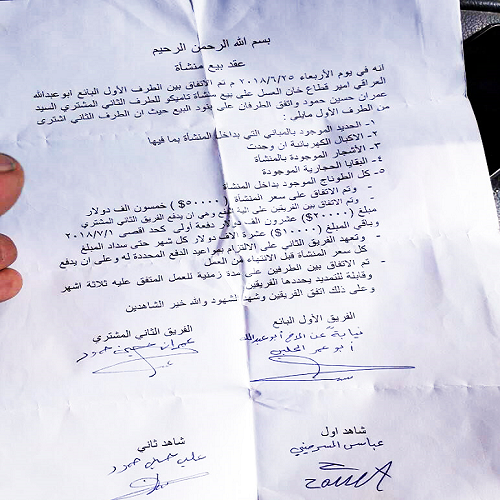 بسم الله الرحمن الرحيم
عقد بيع منشأة
انه في يوم الأربعاء ٢٠١٨/٦/٢٥ م تم الاتفاق بين الطرف الأول البائع ابوعبدالله
العراقي امير قطاع خان العسل على بيع منشأة تاميكو للطرف الثاني المشتري السيد
عمران حسين حمود واتفق الطرفان على بنود البيع حيث ان الطرف الثاني اشترى
من الطرف الأول مايلي :
١- الحديد الموجود بالمباني التي بداخل المنشأة بما فيها
٢- الاكبال الكهربائية ان وجدت
٣- الأشجار الموجودة بالمنشأة
٤- البقايا الحجارية الموجودة
٥- كل الطوناج الموجود بداخل المنشأة
- وتم الاتفاق على سعر المنشأة (٥٠٠٠٠$) خمسون الف دولار
- وتم الاتفاق بين الفريقين على الية الدفع وهي ان يدفع الفريق الثاني المشتري
مبلغ (٢٠٠٠٠$) عشرون الف دولار دفعة أولى كحد اقصى ٢٠١٨/٧/١
وباقي المبلغ (١٠٠٠٠$) عشرة الاف دولار كل شهر حتى سداد المبلغ
- وتعهد الفريق الثاني على الالتزام بمواعيد الدفع المحددة له وعلى ان يدفع
كل سعر المنشأة قبل الانتهاء من العمل
- تم الاتفاق بين الطرفين على مدة زمنية للعمل المتفق عليه ثلاثة اشهر
وقابلة للتمديد يحددها الفريقين
وعلى ذلك اتفق الفريقين وشهد لشهود والله خير الشاهدين
الفريق الأول البائع
نيابة عن الاخ أبو عبدالله
أبو عمر الحلبي
الفريق الثاني المشتري
عمران حسين حمود
شاهد اول
عباس
شاهد ثاني
علي حسين حمود